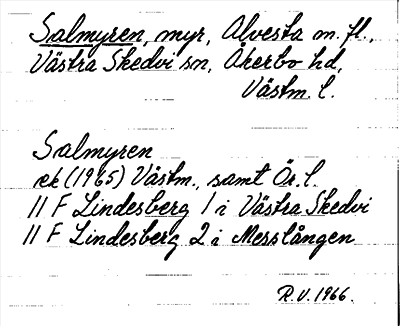 Salmyren, myr, Alvesta m. fl.,
Västra Skedvi sn, Åkerbo hd,
Västm. l.
Salmyren
ek (1965) Västm., samt Ör. l.
11 F Lindesberg 1 i Västra Skedvi
11 F Lindesberg 2 i Messlången
R.V. 1966.